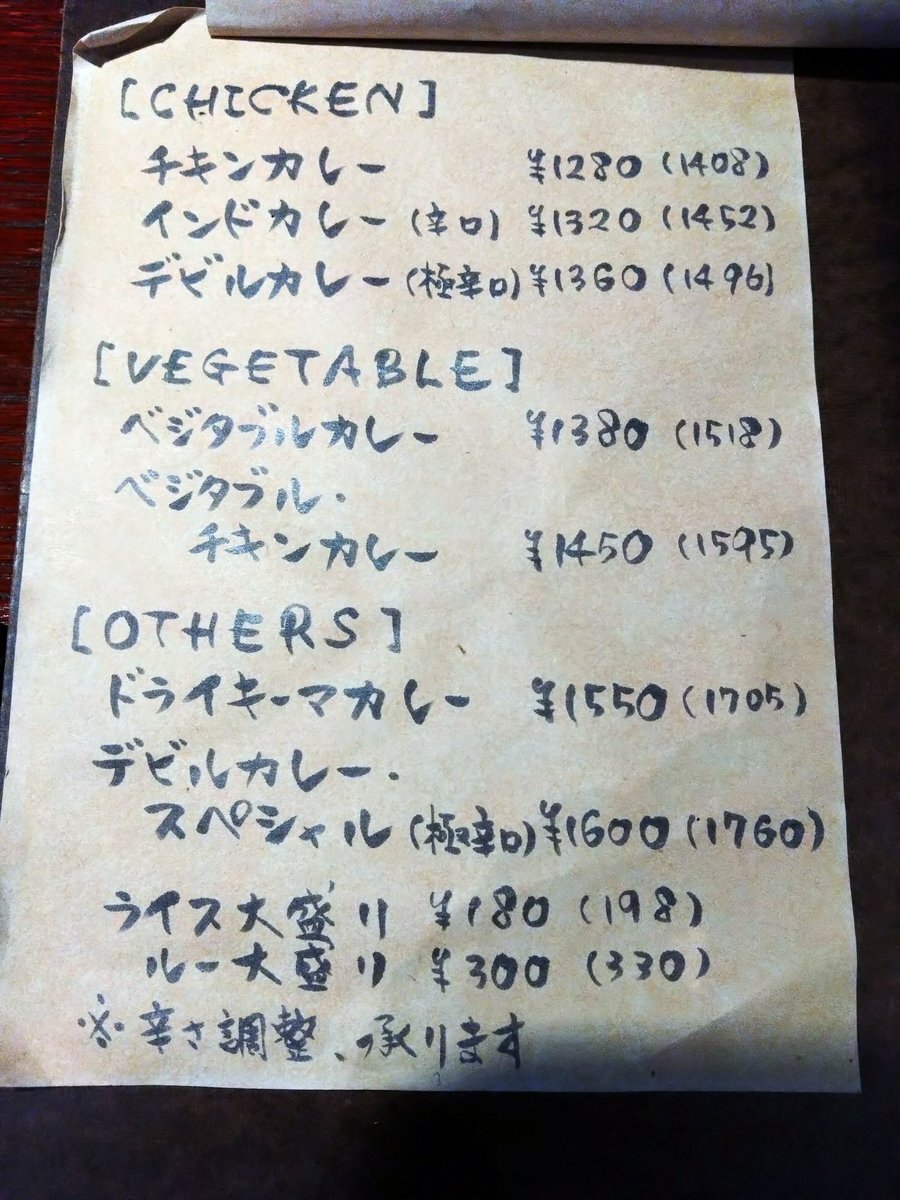 [CHICKEN]
チキンカレー ¥1280 (1408)
インドカレー (辛口) ¥1320 (1452)
デビルカレー (極辛口) ¥1360 (1496)
[VEGETABLE]
ベジタブルカレー ¥1380 (1518)
ベジタブル・
チキンカレー ¥1450 (1595)
[OTHERS]
ドライキーマカレー ¥1550 (1705)
デビルカレー・
スペシャル (極辛口) ¥1600 (1760)
ライス大盛り ¥180 (198)
ルー大盛り ¥300 (330)
※辛さ調整、承ります